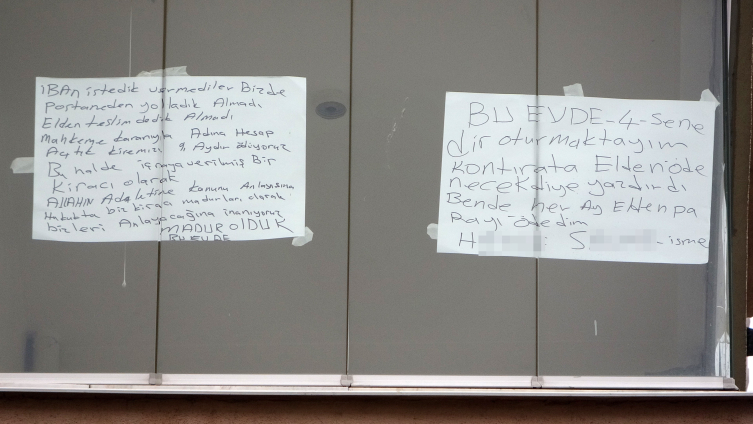 IBAn istedik vermediler Bizde
Postaneden yolladık Almadı
Elden teslim dedik Almadı
Mahkeme kararıyla Adına Hesap
Açtık kiremizi 9 Aydır ödiyoruz
Bu halde icraya verilmiş Bir
Kiracı olarak
AllAHIN Adaletine kanunu
Hukukta biz kiracı madurları olarak
bizleri Anlayacağına inanıyoruz
MADUR OlDUK
BU EVDE
BU EVDE-4-Sene
dir oturmaktayım
kontırata Elden öde
necek diye yazdırdı
Bende her Ay Elden pa
Rayı ödedim
H S -isme